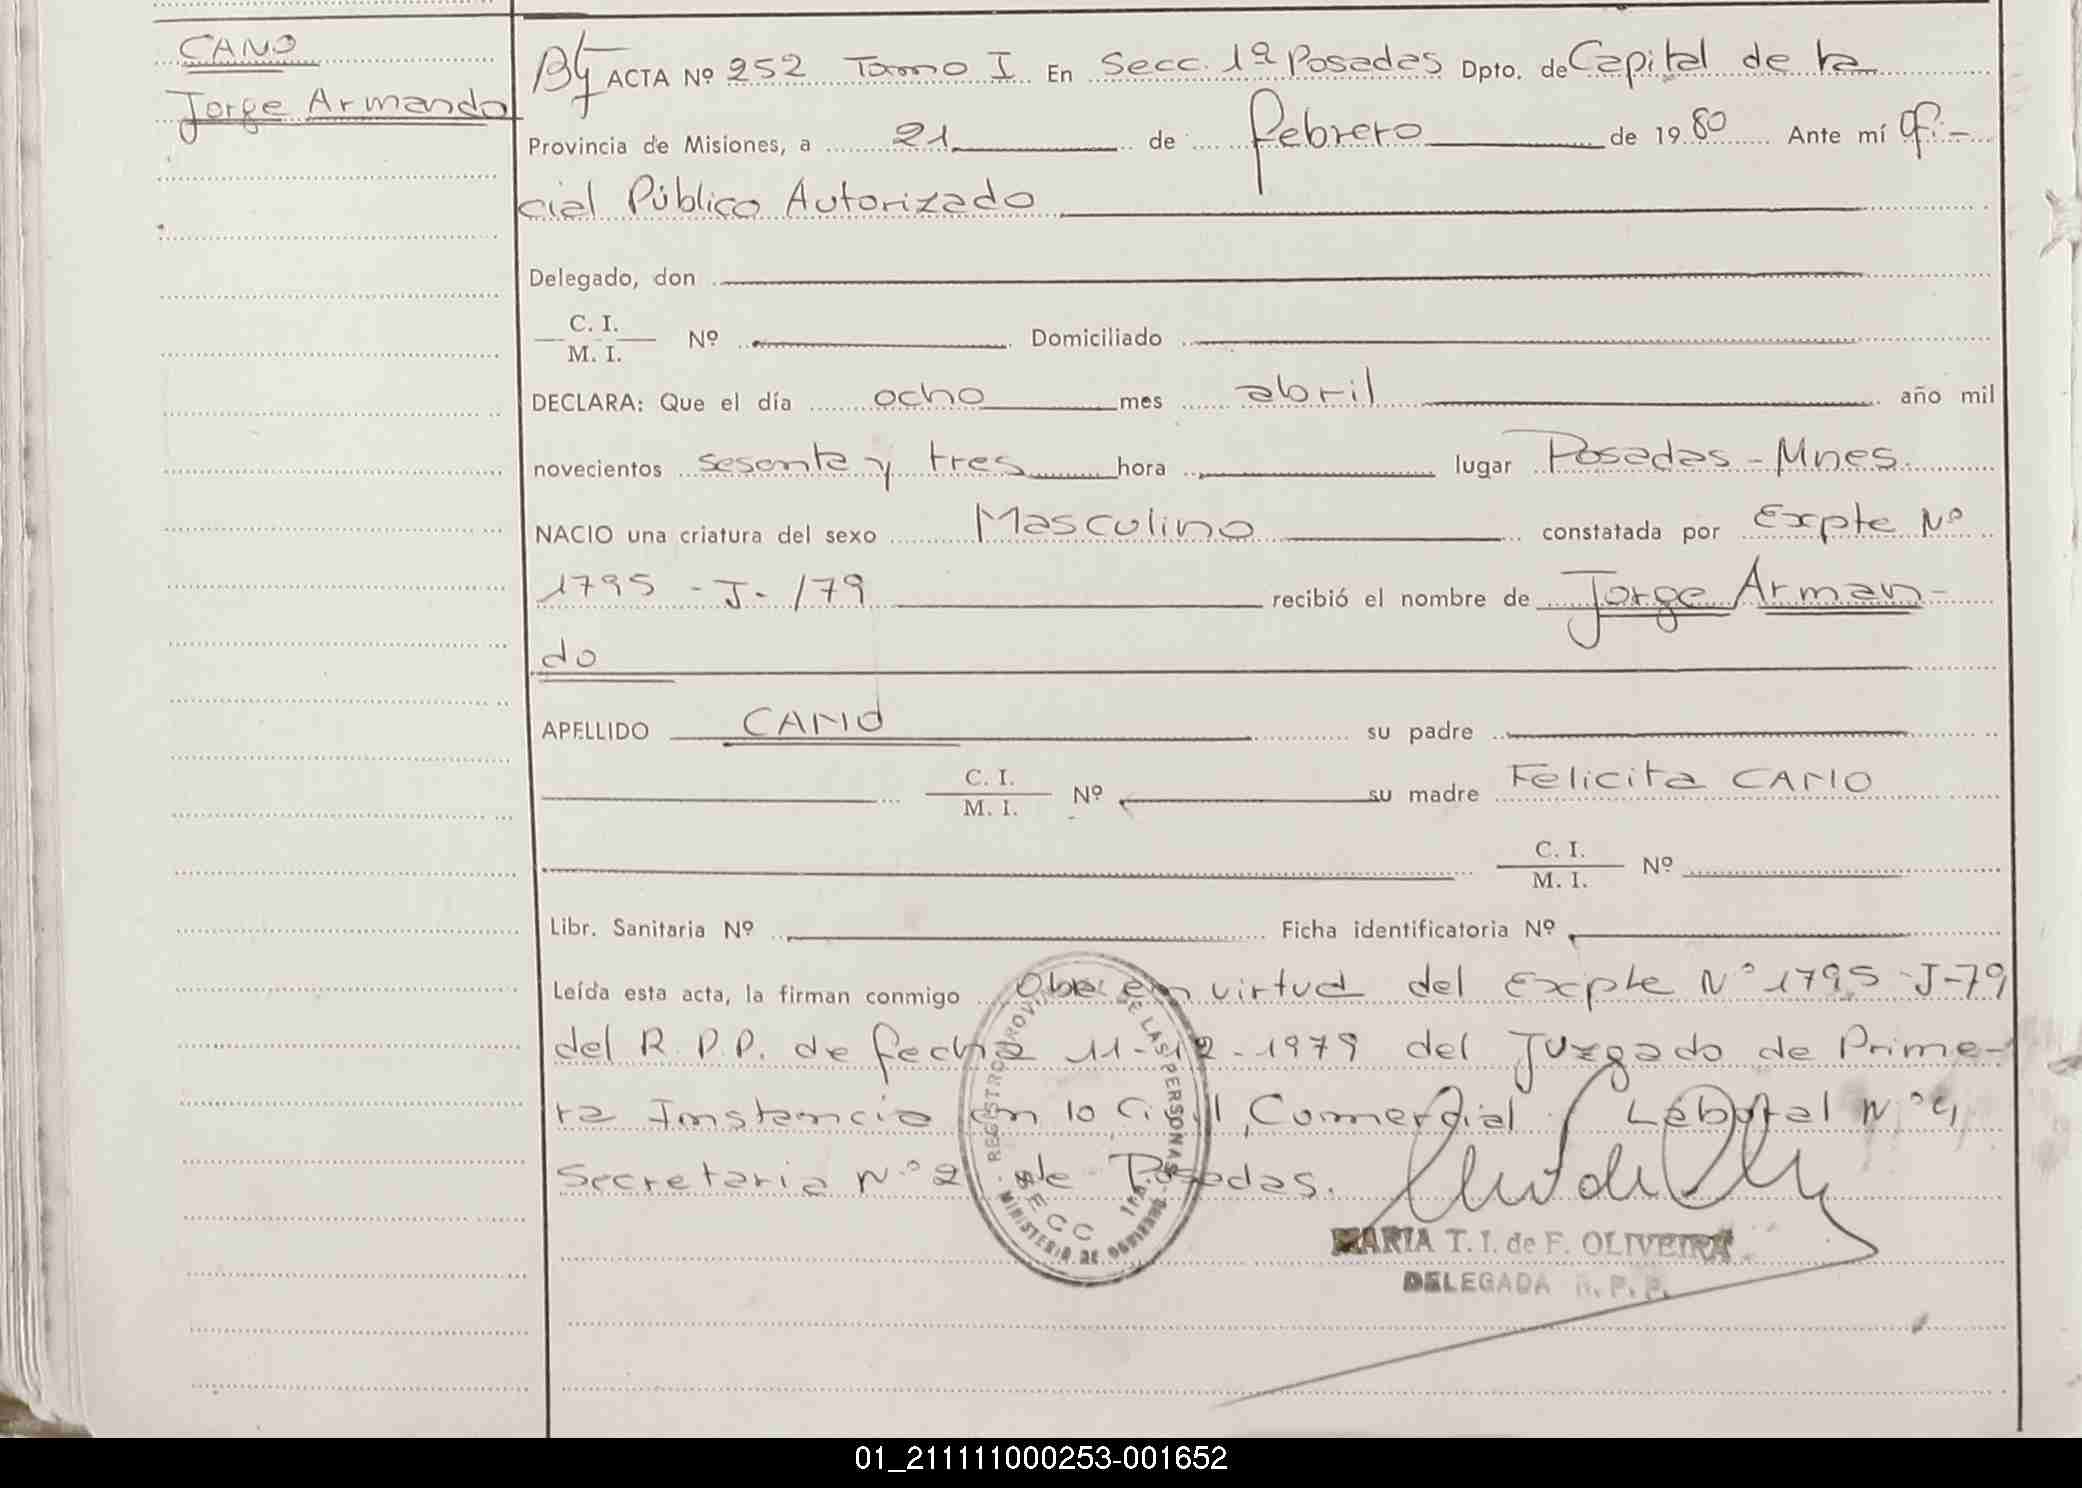 CANO
Jorge Armando
ACTA Nº 252 Tomo I En Secc. 1ª Posadas Dpto. de Capital de la
Provincia de Misiones, a 21 de febrero de 1980 Ante mí Ofi-
cial Público Autorizado
Delegado, don
C. I.
M. I. Nº Domiciliado
DECLARA: Que el día ocho mes abril año mil
novecientos sesenta y tres hora lugar Posadas - Mnes.
NACIO una criatura del sexo Masculino constatada por Expte Nº
1795 - J - /79 recibió el nombre de Jorge Arman-
do
APELLIDO CANO su padre
C. I.
M. I. Nº su madre Felicita CANO
C. I.
M. I. Nº
Libr. Sanitaria Nº Ficha identificatoria Nº
Leída esta acta, la firman conmigo Obe en virtud del Expte Nº 1795 - J-79
del R. P. P. de fecha 11-12-1979 del Juzgado de Prime-
ra Instancia en lo Civil, Comercial Laboral Nº 4
Secretaria Nº 2 de Posadas.
REGISTRO PROVINCIAL DE LAS PERSONAS
SECC 1RA.
MINISTERIO DE GOBIERNO
MARIA T. I. de F. OLIVEIRA
DELEGADA R. P. P.
01_211111000253-001652